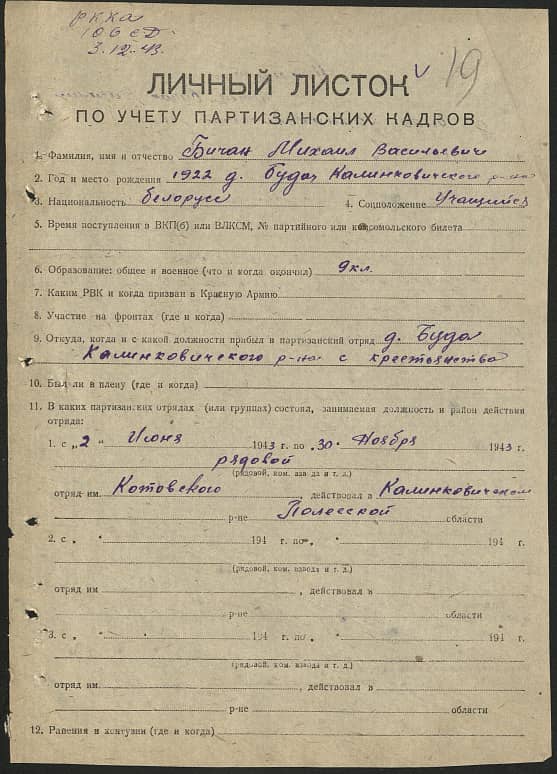 РККА
106 сд
3.12.43.
19
ЛИЧНЫЙ ЛИСТОК
ПО УЧЕТУ ПАРТИЗАНСКИХ КАДРОВ
1. Фамилия, имя и отчество Бичан Михаил Васильевич
2. Год и место рождения 1922 д. Буда Калинковичского р-на
3. Национальность белорусс 4. Соцположение Учащийся
5. Время поступления в ВКП(б) или ВЛКСМ, № партийного или комсомольского билета
6. Образование: общее и военное (что и когда окончил) 9 кл.
7. Каким РВК и когда призван в Красную Армию
8. Участие на фронтах (где и когда)
9. Откуда, когда и с какой должности прибыл в партизанский отряд д. Буда
Калинковичского р-на с крестьянства
10. Был ли в плену (где и когда)
11. В каких партизанских отрядах (или группах) состоял, занимаемая должность и район действия
отряда:
1. с „2" Июня 1943 г. по „30" Ноября 1943 г.
рядовой
(рядовой, ком. взвода и т. д.)
отряд им. Котовского, действовал в Калинковичском
р-не Полесской области
2. с „ " 194 г. по „ " 194 г.
(рядовой, ком. взвода и т. д.)
отряд им , действовал в
р-не области
3. с „ " 194 г. по „ " 194 г.
(рядовой, ком. взвода и т. д.)
отряд им. , действовал в
р-не области
12. Ранения и контузии (где и когда)